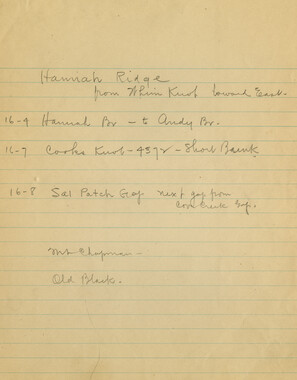 Hannah Ridge
from Whim Knob toward East.
16-9 Hannah Br - to Andy Br.
16-7 Cooks Knob - 4372 - Short Bunk
16-8 Sal Patch Gap next gap from
Corn Creek Gap.
Mt Chapman -
Old Black.